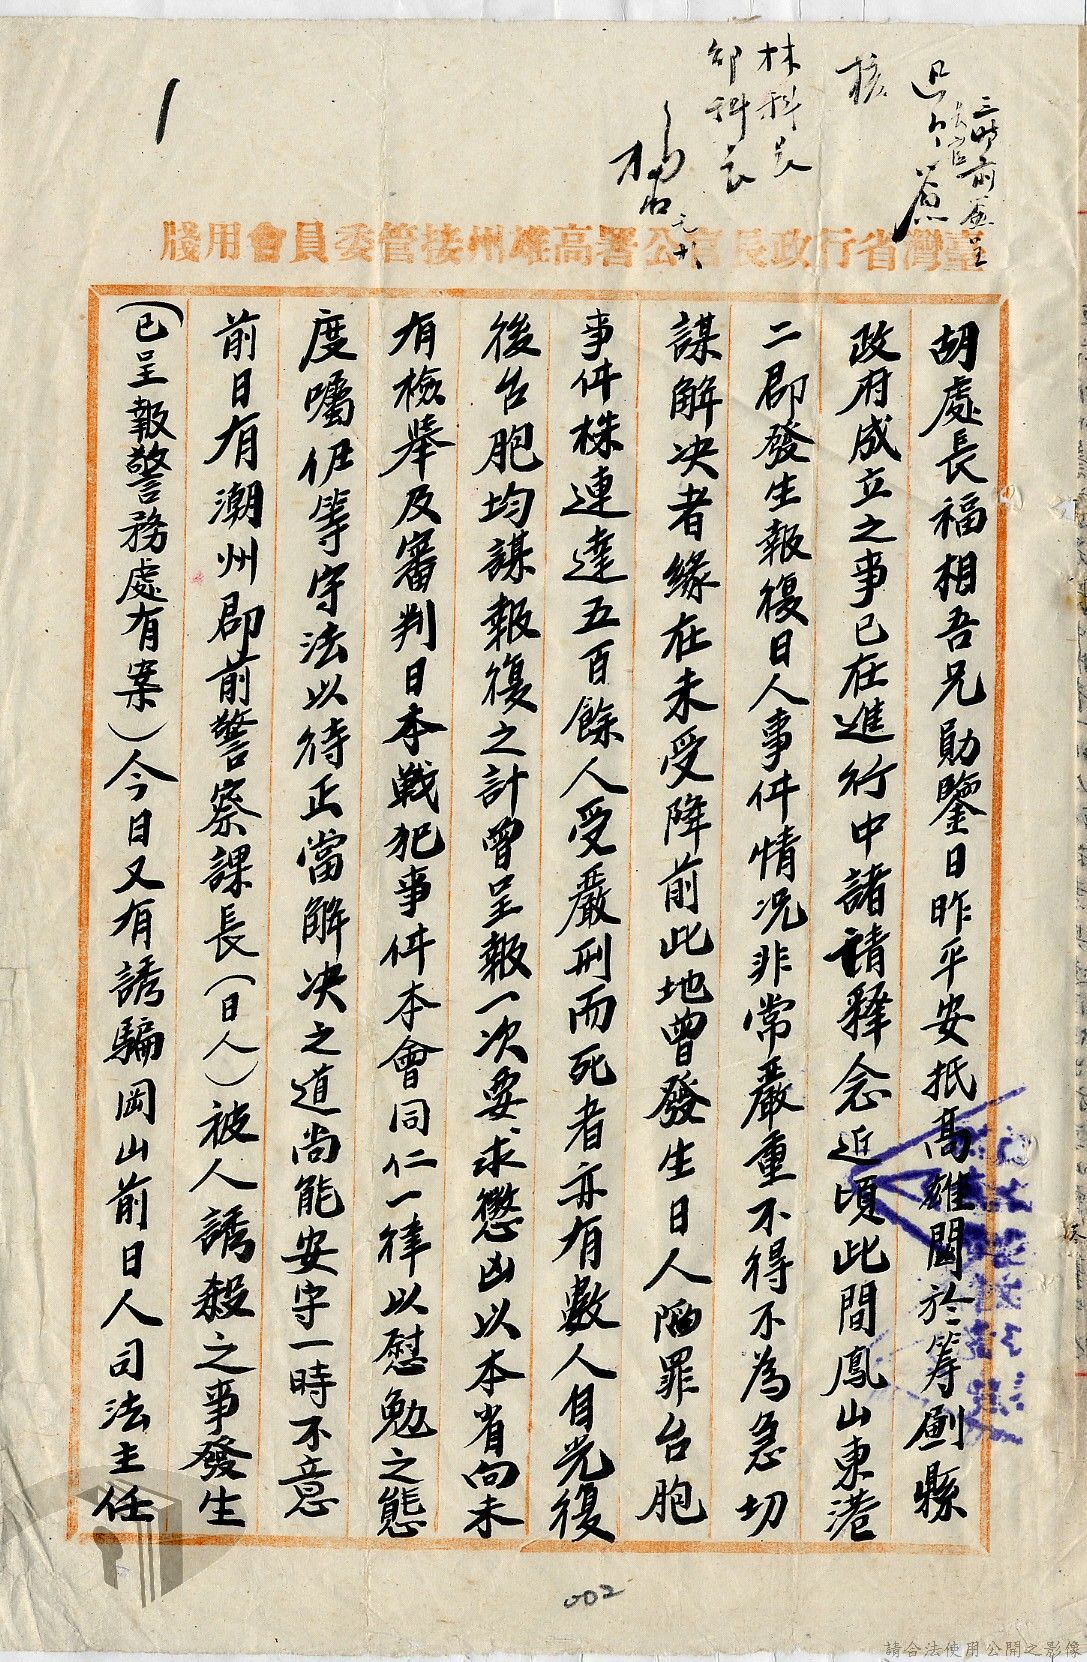 核
林科長
邹科長
臺灣省行政長官公署高雄州接管委員會用牋
胡處長福相吾兄勛鑒日昨平安抵高雄關於籌創縣
政府成立之事已在進行中諸請釋念近頃此間鳳山東港
二郡發生報復日人事件情況非常嚴重不得不為急切
謀解决者緣在未受降前此地曾發生日人陷罪台胞
事件株連達五百餘人受嚴刑而死者亦有數人自光復
後台胞均謀報復之計曾呈報一次要求懲凶以本省尚未
有檢舉及審判日本戰犯事件本會同仁一律以慰勉之態
度囑伊等守法以待正當解决之道尚能安守一時不意
前日有潮州郡前警察課長(日人)被人誘殺之事發生
(已呈報警務處有案)今日又有誘騙岡山前日人司法主任
002
請合法使用公開之影像